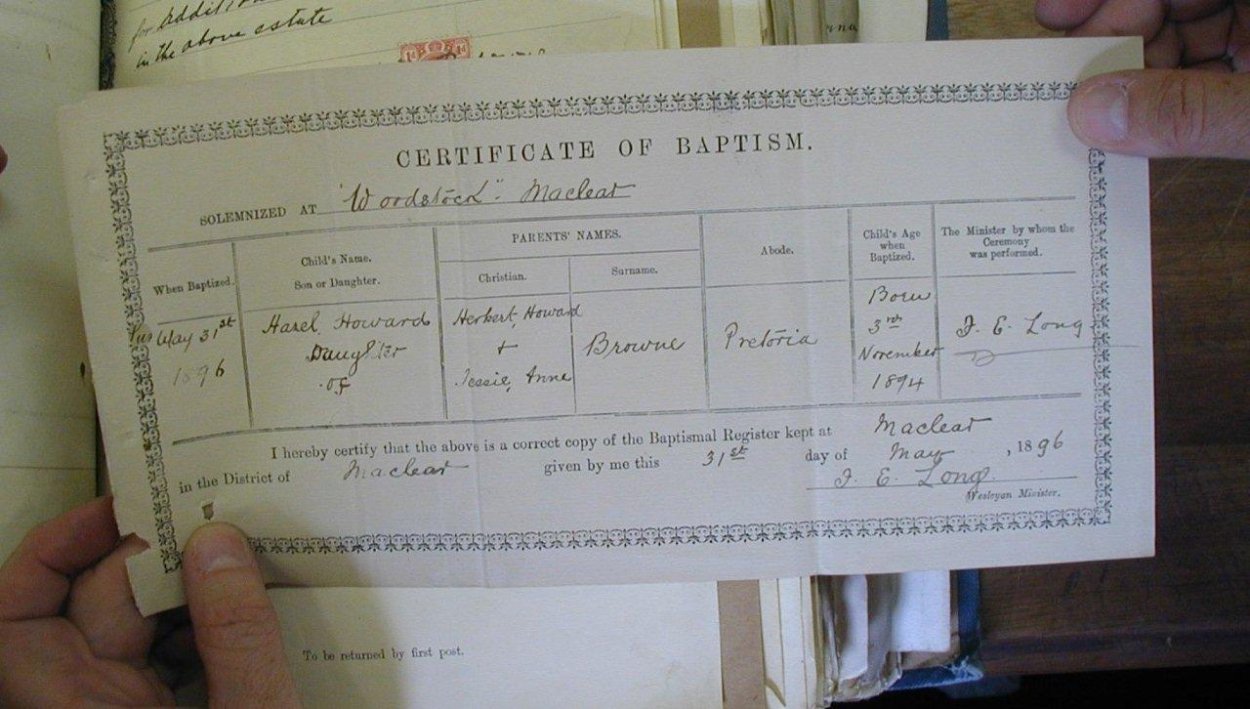 for Addit
in the above estate
1d 1d
CERTIFICATE OF BAPTISM.
SOLEMNIZED AT "Woodstock" Maclear
When Baptized.
Child's Name.
Son or Daughter.
PARENTS' NAMES.
Christian.
Surname.
Abode.
Child's Age
when
Baptized.
The Minister by whom the
Ceremony
was performed.
May 31st
1896
Hazel, Howard
Daughter
of
Herbert, Howard
+
Jessie, Anne
Browne
Pretoria
Born
3rd
November
1894
J. E. Long
I hereby certify that the above is a correct copy of the Baptismal Register kept at Maclear
in the District of Maclear given by me this 31st day of May, 1896
J. E. Long
Wesleyan Minister.
To be returned by first post.